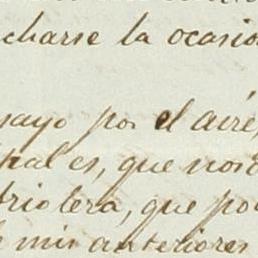 charse la ocasio
sayo por el aire,
pal es, que noso
driotera, que po
mis anteriores